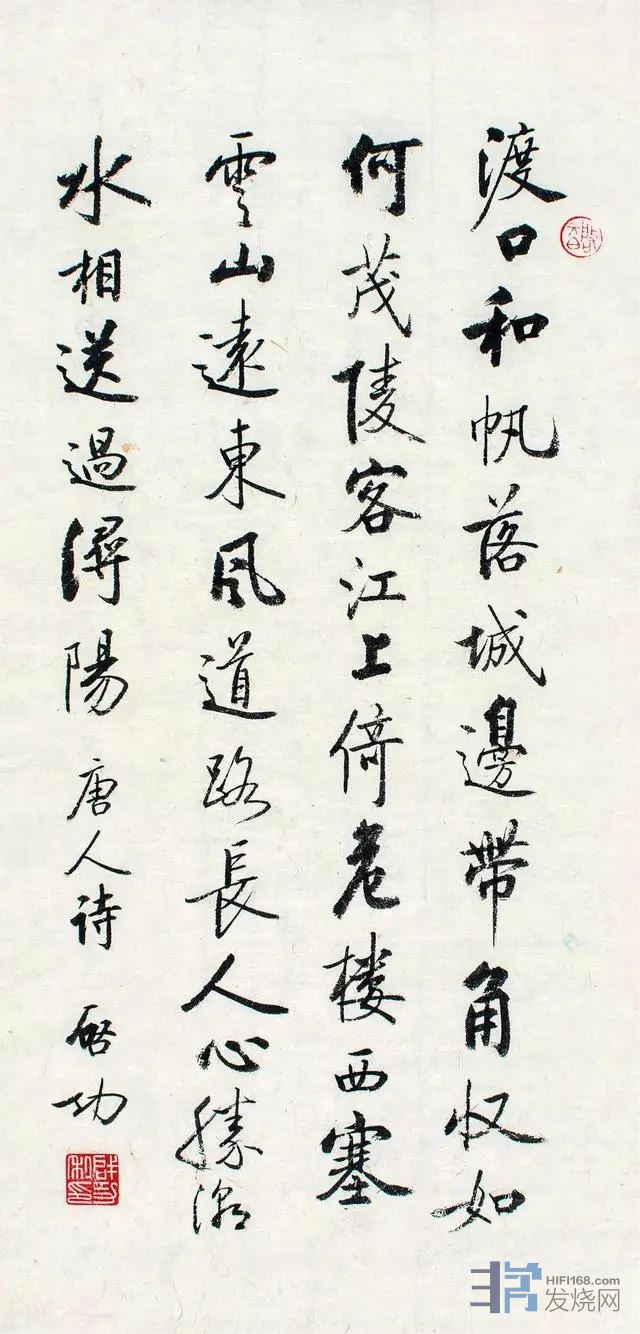 渡口和帆落城邊帶角收如
何茂陵客江上倚危楼西塞
雲山遠東風道路長人心勝潮
水相送過潯陽 唐人诗 啓功
HIFI168.com
发烧网